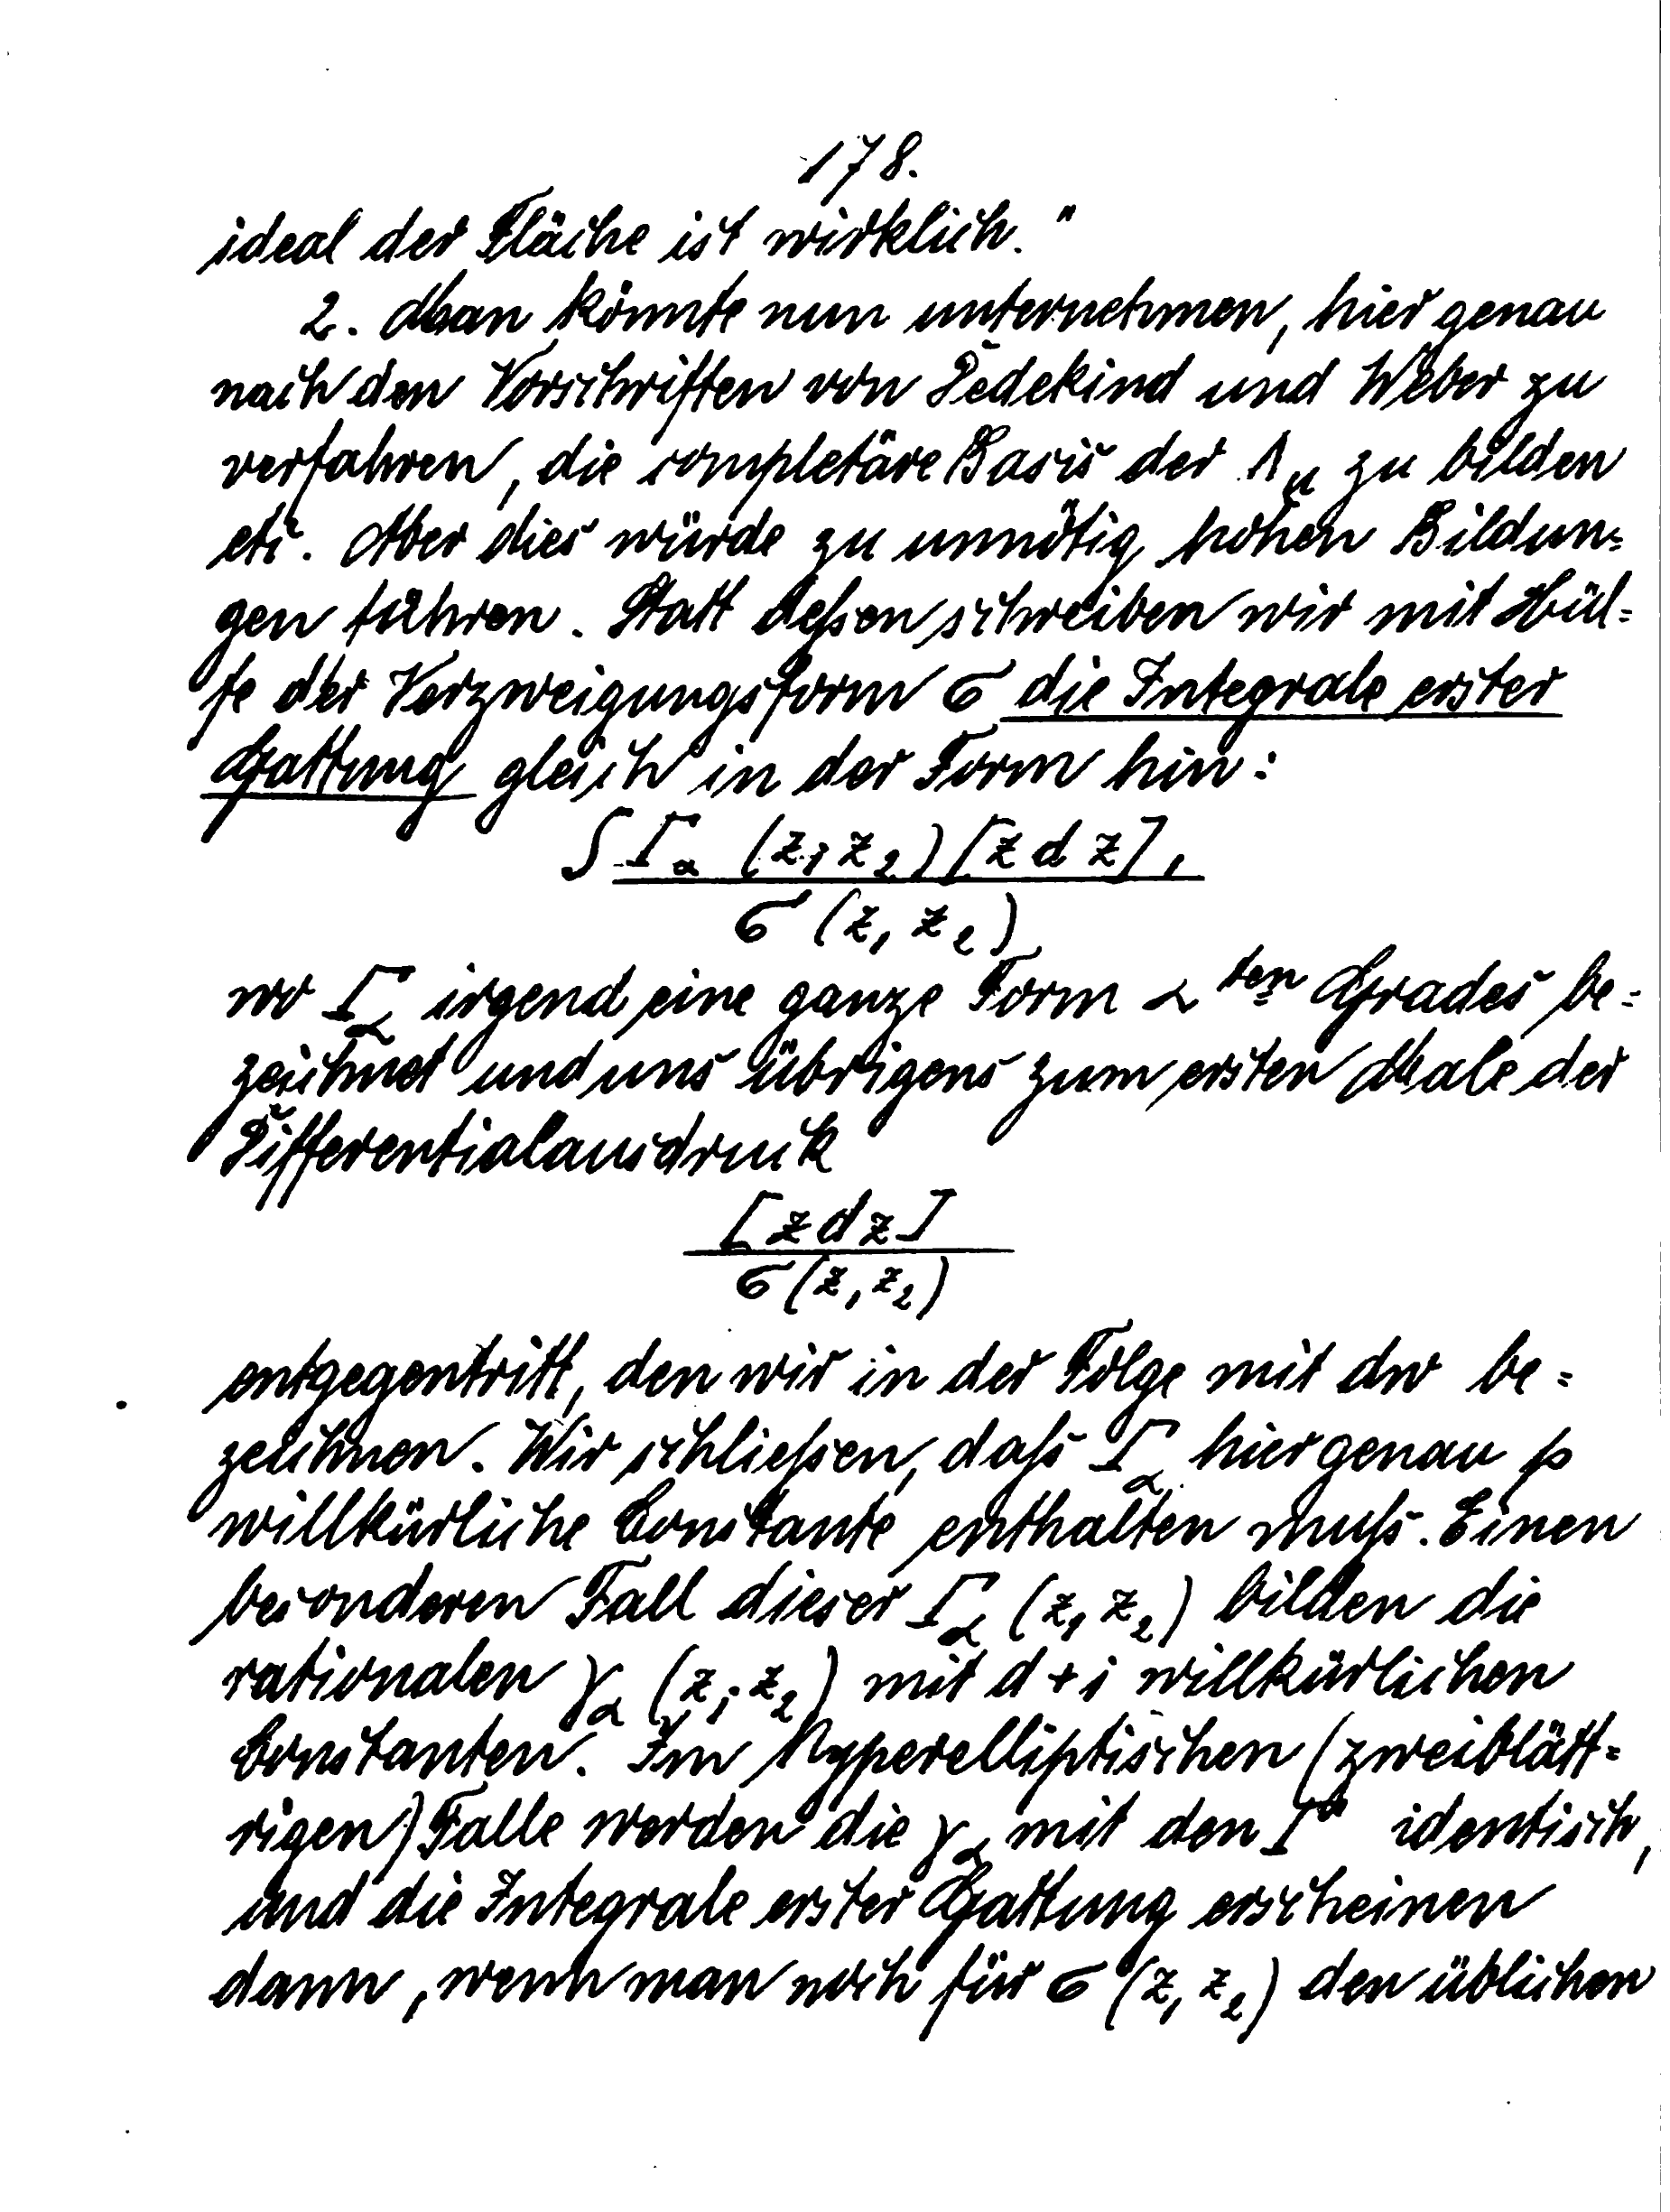 178.
ideal der Fläche ist wirklich."
2. Man könnte nun unternehmen, hier genau
nach den Vorschriften von Dedekind und Weber zu
verfahren, die completäre Basis der Λ_μ zu bilden
etc. Aber dies würde zu unnötig hohen Bildun=
gen führen. Statt dessen schreiben wir mit Hül=
fe der Verzweigungsform σ die Integrale erster
Gattung gleich in der Form hin:
∫ Γ_α (z_1 z_2) [z d z],
σ (z_1 z_2)
wo Γ_α irgend eine ganze Form α ten Grades be=
zeichnet und uns übrigens zum ersten Male der
Differentialausdruck
[z d z]
σ (z_1 z_2)
entgegentritt, den wir in der Folge mit dw be=
zeichnen. Wir schließen, daß Γ_α hier genau p
willkürliche Constante enthalten muß. Einen
besonderen Fall dieser Γ_α (z_1 z_2) bilden die
rationalen γ_α (z_1 z_2) mit d + 1 willkürlichen
Constanten. Im hyperelliptischen (zweiblätt=
rigen) Falle werden die γ_α mit den Γ^α identisch,
und die Integrale erster Gattung erscheinen
dann, wenn man noch für σ (z_1 z_2) den üblichen